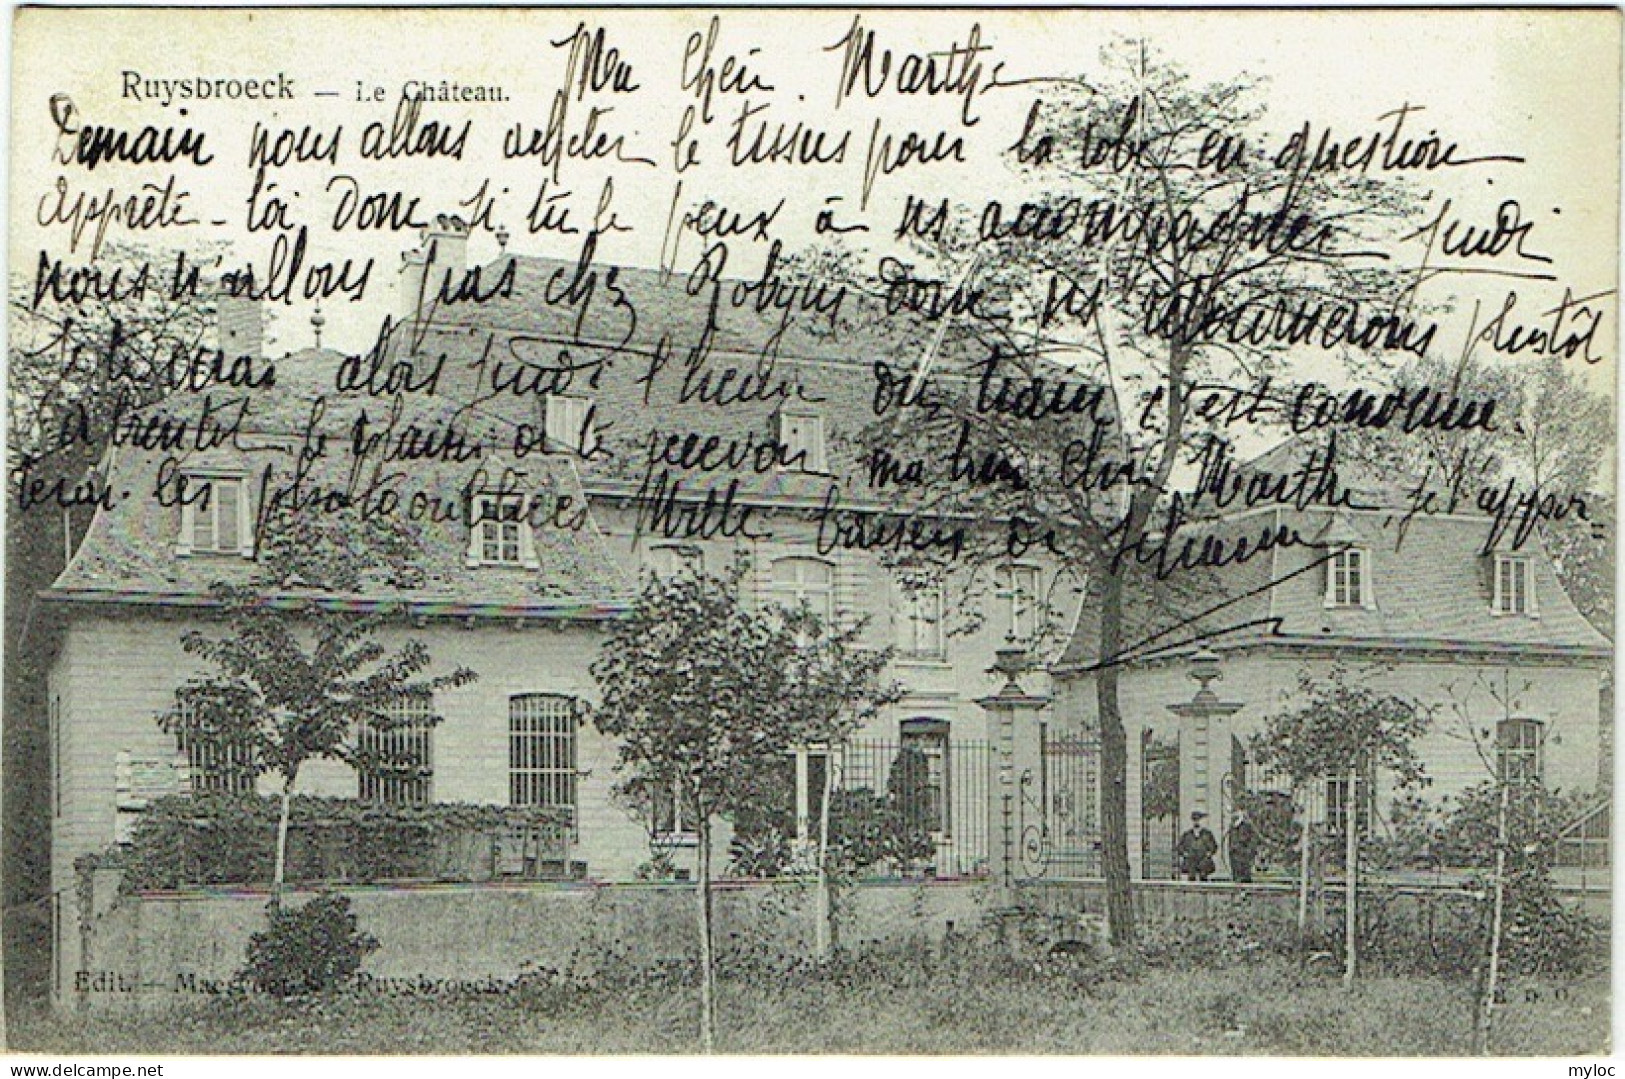 Ruysbroeck — Le Château.
Ma Chère Marthe
Demain nous allons acheter le tissus pour la robe en question
apprête-toi donc si tu le peux à ns accompagner jeudi
nous n'allons pas chez Robyns donc ns retournerons plustôt
Je te serai alors jeudi l'heure du train c'est convenu.
à bientôt le plaisir de te recevoir ma bien chère Marthe, je t'appor=
terai les photo oubliées Mille baisers de
Edit. — Ruysbroeck.
delcampe.net
myloc